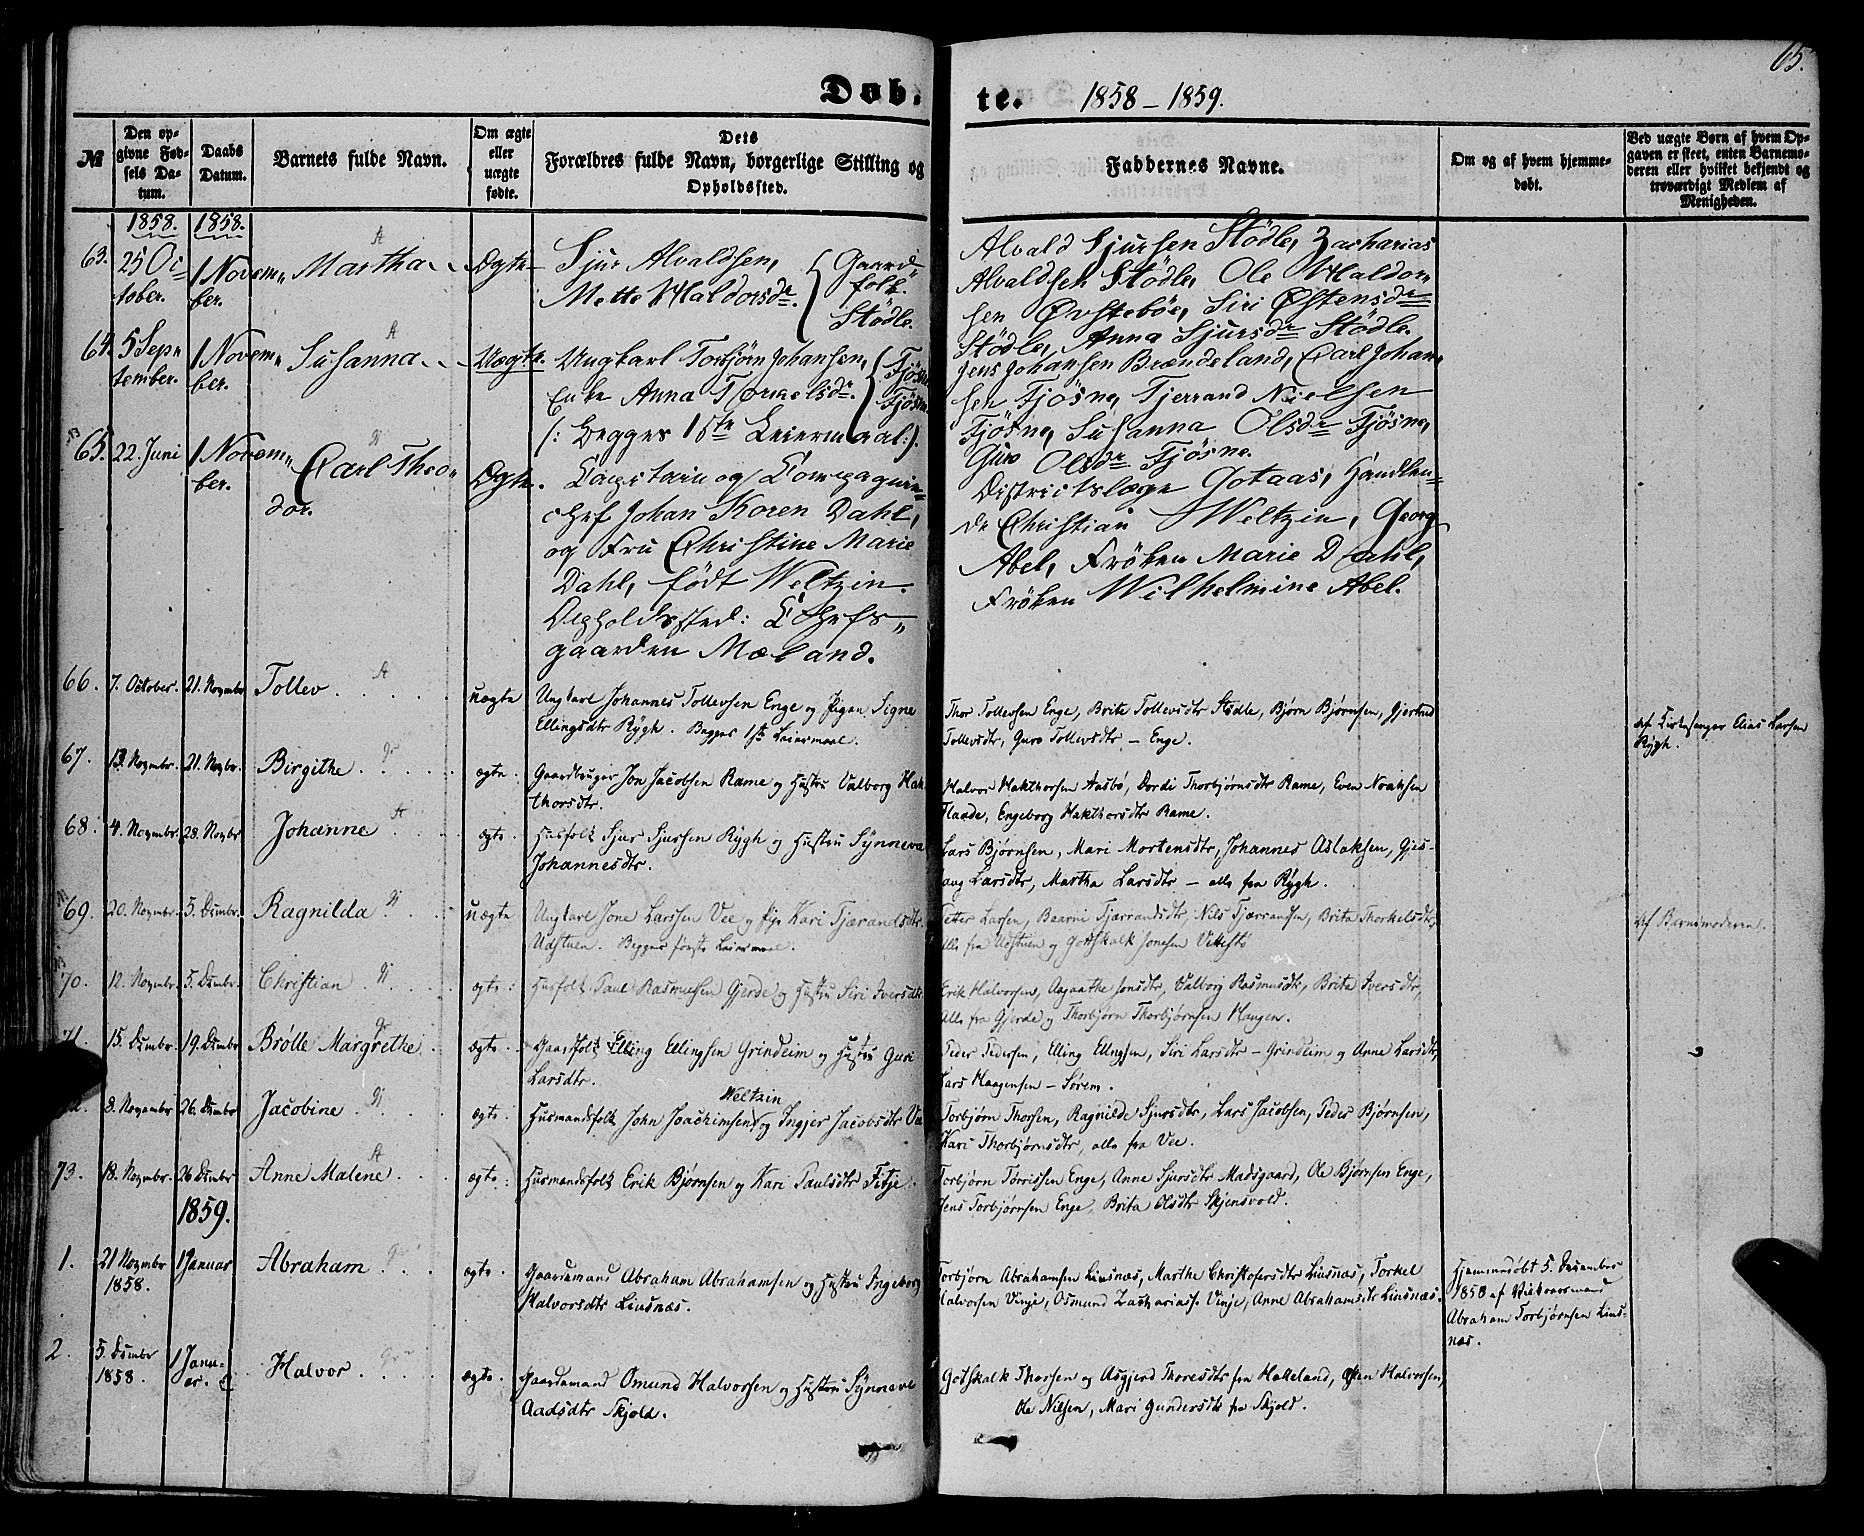 65.
Døb. te. 1858 – 1859.
№
Den op-
givne Fød-
sels Da-
tum.
Daabs
Datum.
Barnets fulde Navn.
Om ægte
eller
uægte
fødte.
Dets
Forældres fulde Navn, borgerlige Stilling og
Opholdssted.
Faddernes Navne.
Om og af hvem hjemme-
døbt.
Ved uægte Børn af hvem Op-
gaven er skeet, enten Barnemo-
deren eller hvilket bekjendt og
troværdigt Medlem af
Menigheden.
1858. 1858.
63. 25 Oc-
tober. 1 Novem-
ber. Martha Ægte
Sjur Alvaldsen,
Mette Haldorsdr. Gaard-
folk.
Stødle.
Alvald Sjursen Stødle, Zacharias
Alvaldsen Stødle, Ole Haldor-
sen Øvstebøe, Siri Østensdr
Stødle, Anna Sjursdr Stødle.
64. 5 Sep-
tember. 1 Novem-
ber. Susanna Uægte.
Ungkarl Torbjørn Johansen, Fjøsne
Enke Anna Tormelsdr. Fjøsne.
/: Begges 1ste Leiermaal :/.
Jens Johansen Brændeland, Carl Johan-
sen Fjøsne, Tjerrand Nielsen
Fjøsne, Susanna Olsdr Fjøsne,
Guro Olsdr Fjøsne.
65. 22 Juni 1 Novem-
ber. Carl Theo-
dor. Ægte.
Capitain og Compagnie-
chef Johan Koren Dahl,
og Fru Christine Marie
Dahl, født Weltzin.
Opholdssted: Chefs-
gaarden Mæland.
Districtslæge Gotaas, Handlen-
de Christian Weltzin, Georg
Abel, Frøken Marie Dahl,
Frøken Wilhelmine Abel.
66. 7. October. 21. Novmbr Tollev uægte
Ungkarl Johannes Tollevsen Enge og Pigen Signe
Ellingsdtr Rygh. Begges 1ste Leiermaal.
Thor Tollevsen Enge, Brite Tollevsdtr Stødle, Bjørn Bjørnsen, Gjertrud
Tollevsdtr, Guro Tollevsdtr – Enge.
af Kirkesanger Elias Larsen
Rygh.
67. 13. Novmbr. 21. Novbr. Birgithe ægte.
Gaardbruger Jon Jacobsen Rame og Hustru Valborg Hak-
thorsdtr.
Halvor Hakthorsen Aasbø, Dordi Thorbjørnsdtr Rame, Even Noahsen
Flaade, Engeborg Hakthorsdtr Rame.
68. 4. Novmbr. 28. Novbr Johanne ægte.
Husfolk Sjur Sjursen Rygh og Hustru Synneva
Johannesdtr.
Lars Bjørnsen, Mari Mortensdtr, Johannes Aslaksen, Gjes-
laug Larsdtr, Martha Larsdtr – alle fra Rygh.
69. 20. Novmbr 5. Dcmbr. Ragnilda uægte
Ungkarl Jone Larssen Vee og Pige Kari Tjærandsdtr
Udstuen. Begges første Leiermaal.
Petter Larsen, Baarni Tjærrandsdtr, Nils Tjærransen, Brita Thorkelsdtr,
alle fra Udstuen og Gotskalk Jonesen Vettestø
af Barnemoderen.
70. 12. Novmbr. 5. Dcmbr. Christian ægte.
Husfolk Paul Rasmusen Gjerde og Hustru Siri Iversdtr
Erik Halvorsen, Agaathe Jonsdtr, Valborg Rasmusdtr, Brita Iversdtr,
alle fra Gjerde og Thorbjørn Thorbjørnsen Haugen.
71. 15. Dcmbr. 19. Dcmbr Brølle Margrethe ægte.
Gaardfolk Elling Ellingsen Grindeim og Hustru Guri
Larsdtr.
Peder Pedersen, Elling Ellingsen, Siri Larsdtr – Grindeim og Anne Larsdtr,
Lars Haagensen – Sørem.
72. 8. Novmbr 26. Dcmbr Jacobine ægte.
Weltzin
Husmandsfolk John Joachimsen og Ingjer Jacobsdtr Vee
Torbjørn Thorsen, Ragnilde Sjursdtr, Lars Jacobsen, Peder Bjørnsen,
Kari Thorbjørnsdtr, alle fra Vee.
73. 18. Novmbr. 26 Dcmbr Anne Malene ægte.
Husmandsfolk Erik Bjørnsen og Kari Paulsdtr Fitje.
Torbjørn Tørrissen Enge, Anne Sjursdtr Madsgaard, Ole Bjørnsen Enge,
Jens Torbjørnsen Enge, Brita Olsdtr Skjensvold.
1859.
1. 21 Novmbr
1858. 1 Januar Abraham ægte.
Gaardmand Abraham Abrahamsen og Hustru Ingeborg
Halvorsdtr Liusnæs.
Torbjørn Abrahamsen Liusnæs, Marthe Christofersdtr Liusnæs, Torkel
Halvorsen Vinje, Osmund Zachariass. Vinje, Anne Abrahamsdtr Liusnæs.
Hjemmedøbt 5. December
1858 af
Abraham Torbjørnsen Lius-
næs.
2. 5. Dcmbr
1858. 1 Janu-
ar. Halvor ægte.
Gaardmand Omund Halvorsen og Hustru Synneve
Aadsdtr Skjold.
Gotskalk Thorsen og Asgjerd Thoresdtr fra Halleland, Osten Halvorsen,
Ole Nilsen, Mari Gundersdtr fra Skjold.